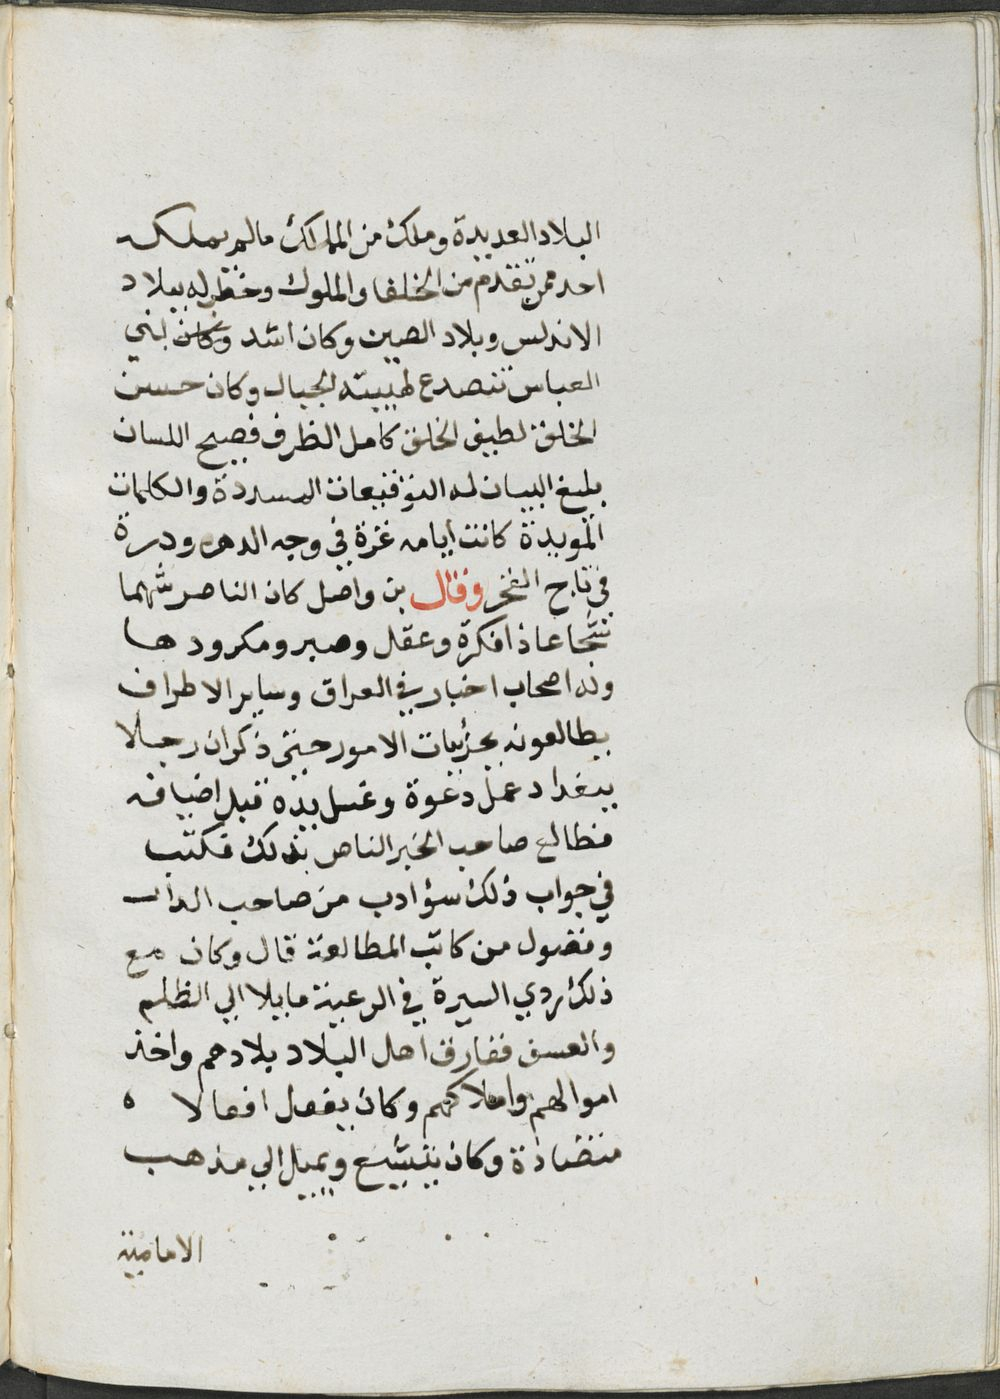 البلاد العديدة وملك من الممالك مالم يملك
احد ممن تقدم من الخلفا والملوك وخطب له ببلاد
الاندلس وبلاد الصين وكان اشد وكان لبني
العباس تتصدع لهيبته الجبال وكان حسن
الخلق لطيف الخلق كامل الظرف فصيح اللسان
بليغ البيان له التوقيعات المسددة والكلمات
المويدة كانت ايامه غرة في وجه الدهر ودرة
في تاج الفخر وقال بن واصل كان الناصر شهما
شجاعا ذا فكرة وعقل وصبر ومكر ودها
وله اصحاب اخبار في العراق وساير الاطراف
يطالعونه بجزئيات الامور حتى ذكر ان رجلا
ببغداد عمل دعوة وغسل يده قبل اضيافه
فطالع صاحب الخبر الناصر بذلك فكتب
في جواب ذلك سؤ ادب من صاحب الدار
وفضول من كاتب المطالعة قال وكان مع
ذلك ردي السيرة في الرعية مايلا الي الظلم
والعسف ففارق اهل البلاد بلادهم واخذ
اموالهم واملاكهم وكان يفعل افعالا ه
متضادة وكان يتشيع ويميل الي مذهب
الامامية